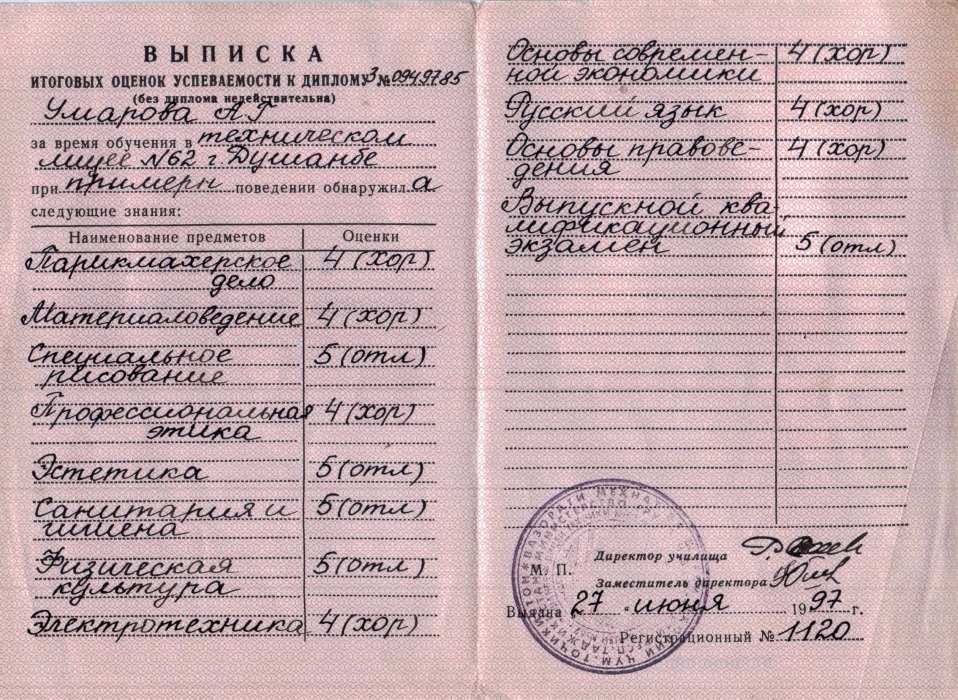 ВЫПИСКА
ИТОГОВЫХ ОЦЕНОК УСПЕВАЕМОСТИ К ДИПЛОМУ З № 0949785
(без диплома недействительна)
Умарова А Г
за время обучения в техническом
лицее №62 г Душанбе
при примерн поведении обнаружил а
следующие знания:
Наименование предметов Оценки
Парикмахерское 4 (хор)
дело
Материаловедение 4 (хор)
Специальное 5 (отл)
рисование
Профессиональная 4 (хор)
этика
Эстетика 5 (отл)
Санитария и 5 (отл)
гигиена
Физическая 5 (отл)
культура
Электротехника 4 (хор)
Основы современ- 4 (хор)
ной экономики
Русский язык 4 (хор)
Основы правове- 4 (хор)
дения
Выпускной ква-
лификационный
экзамен 5 (отл)
Директор училища
М. П.
Заместитель директора
Выдана 27 " июня 1997 г.
Регистрационный № 1120